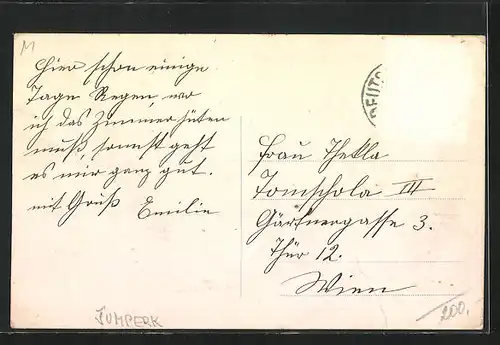 M
Hier schon einige
Tage Regen, wo
ich das Zimmer hüten
muß, sonnst geht
es mir ganz gut.
mit Gruß Emilie
DEUTS
Frau Thekla
Tomschola III
Gärtnergasse 3.
Thür 12.
Wien
JUMPERK
200.